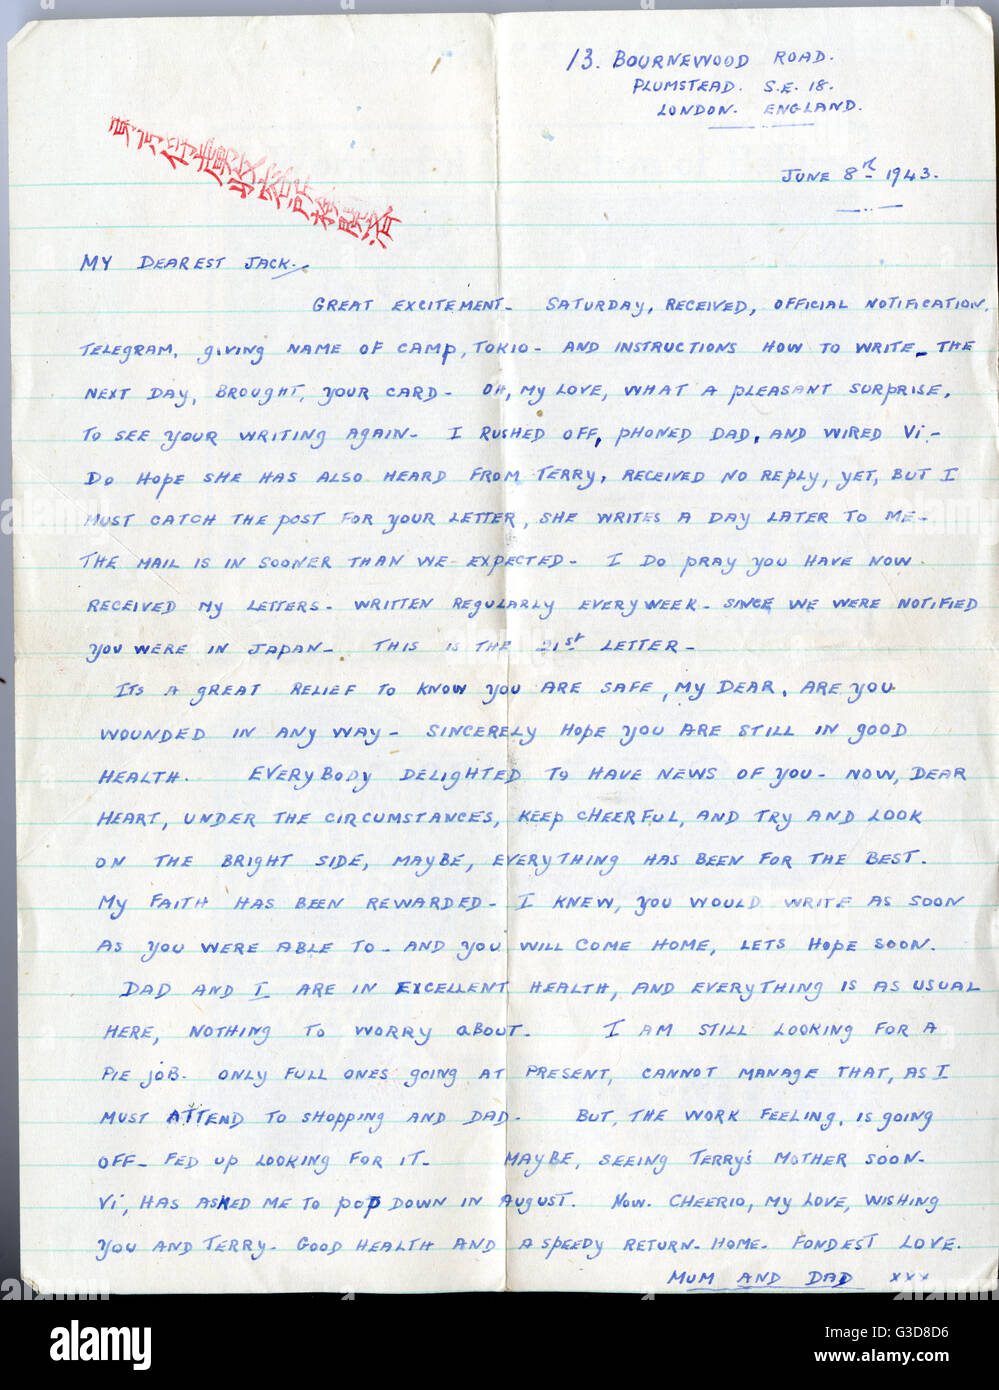 13. BOURNEWOOD ROAD.
PLUMSTEAD. S.E. 18.
LONDON. ENGLAND.
JUNE 8TH 1943.
MY DEAREST JACK.
GREAT EXCITEMENT- SATURDAY, RECEIVED, OFFICIAL NOTIFICATION.
TELEGRAM, GIVING NAME OF CAMP, TOKIO- AND INSTRUCTIONS HOW TO WRITE- THE
NEXT DAY, BROUGHT, YOUR CARD- OH, MY LOVE, WHAT A PLEASANT SURPRISE,
TO SEE YOUR WRITING AGAIN- I RUSHED OFF, PHONED DAD, AND WIRED Vi,-
DO HOPE SHE HAS ALSO HEARD FROM TERRY, RECEIVED NO REPLY, YET, BUT I
MUST CATCH THE POST FOR YOUR LETTER, SHE WRITES A DAY LATER TO ME-
THE MAIL IS IN SOONER THAN WE EXPECTED- I DO PRAY YOU HAVE NOW
RECEIVED MY LETTERS- WRITTEN REGULARLY EVERY WEEK- SINCE WE WERE NOTIFIED
YOU WERE IN JAPAN- THIS IS THE 21st LETTER-
ITS A GREAT RELIEF TO KNOW YOU ARE SAFE, MY DEAR, ARE YOU
WOUNDED IN ANY WAY- SINCERELY HOPE YOU ARE STILL IN GOOD
HEALTH. EVERYBODY DELIGHTED TO HAVE NEWS OF YOU- NOW, DEAR
HEART, UNDER THE CIRCUMSTANCES, KEEP CHEERFUL, AND TRY AND LOOK
ON THE BRIGHT SIDE, MAYBE, EVERYTHING HAS BEEN FOR THE BEST.
MY FAITH HAS BEEN REWARDED- I KNEW, YOU WOULD WRITE AS SOON
AS YOU WERE ABLE TO- AND YOU WILL COME HOME, LETS HOPE SOON.
DAD AND I ARE IN EXCELLENT HEALTH, AND EVERYTHING IS AS USUAL
HERE, NOTHING TO WORRY ABOUT- I AM STILL LOOKING FOR A
PIE JOB. ONLY FULL ONES GOING AT PRESENT, CANNOT MANAGE THAT, AS I
MUST ATTEND TO SHOPPING AND DAD- BUT, THE WORK FEELING, IS GOING
OFF- FED UP LOOKING FOR IT- MAYBE, SEEING TERRY'S MOTHER SOON-
Vi, HAS ASKED ME TO POP DOWN IN AUGUST. NOW. CHEERIO, MY LOVE, WISHING
YOU AND TERRY- GOOD HEALTH AND A SPEEDY RETURN- HOME- FONDEST LOVE.
MUM AND DAD XXX
alamy
G3D8D6
www.alamy.com